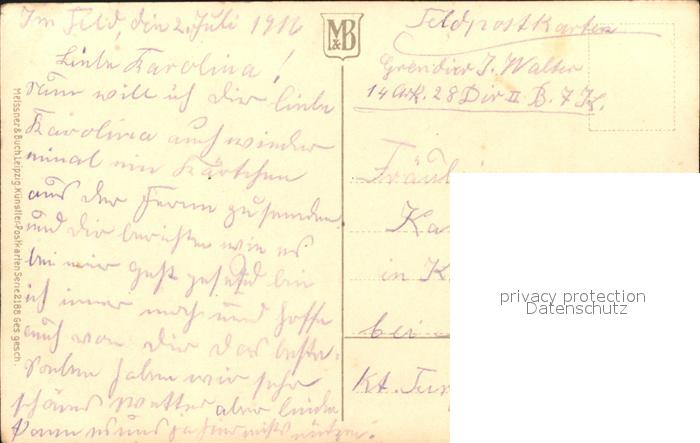 Im Feld, den 2. Juli 1916
Liebe Karolina!
Nun will ich Dir liebe
Karolina auch wieder
einmal ein Kärtchen
aus der Ferne zusenden
und dir berichten wie es
bei mir geht gesund bin
ich immer noch und hoffe
auch von Dir das beste.
haben wir sehr
schönes Wetter aber leider
kann es uns nichts nützen.
M&B
Feldpostkarten
Grenadier J. Walter
14 Ark. 28 Div II B. 7 K.
Fräul
Ka
in K
bei
Kt. Tur
Meissner & Buch Leipzig. Künstler-Postkarten Serie 2188 Ges. gesch.
privacy protection
Datenschutz